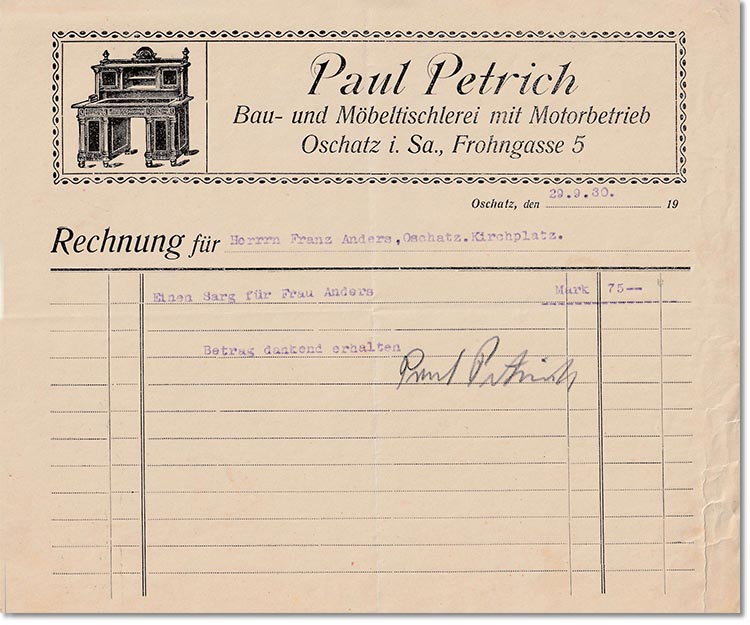 Paul Petrich
Bau- und Möbeltischlerei mit Motorbetrieb
Oschatz i. Sa., Frohngasse 5
Oschatz, den 29.9.30. 19
Rechnung für Herrrn Franz Anders,Oschatz.Kirchplatz.
Einen Sarg für Frau Anders Mark 75--
Betrag dankend erhalten
Paul Petrich